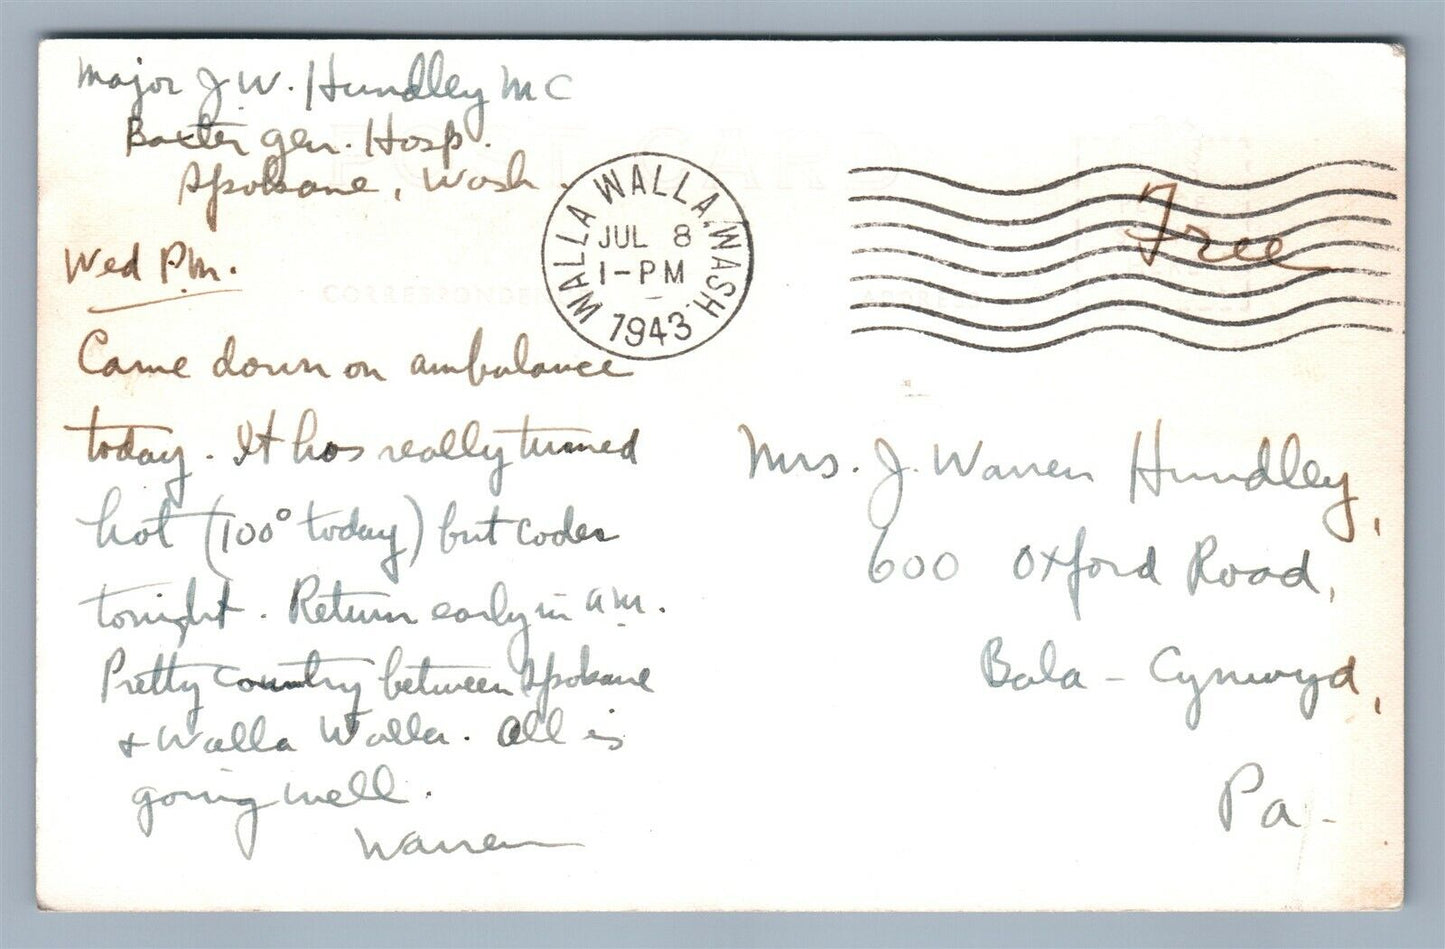 Major J. W. Hundley MC
Baxter Gen. Hosp.
Spokane, Wash.
WALLA WALLA, WASH.
JUL 8
1-PM
1943
Free
Wed P.M.
Came down on ambulance
today. It has really turned
hot (100° today) but cooler
tonight. Return early in a.m.
Pretty country between Spokane
& Walla Walla. All is
going well.
Warren
Mrs. J. Warren Hundley,
600 Oxford Road,
Bala - Cynwyd,
Pa-
CORRESPONDENCE
ADDRESS